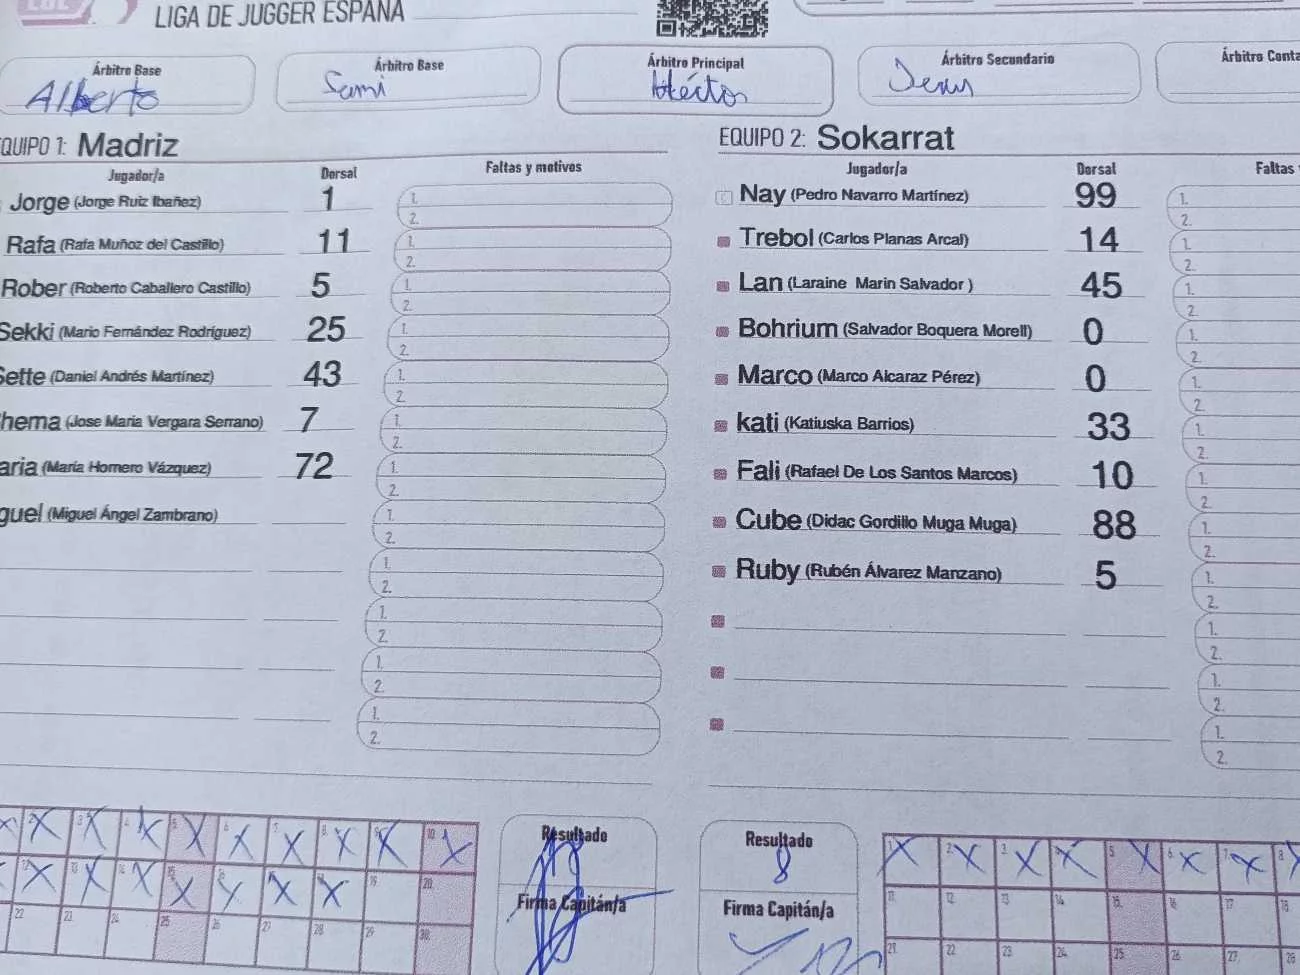 LIGA DE JUGGER ESPAÑA
Árbitro Base
Alberto
Árbitro Base
Sami
Árbitro Principal
Héctor
Árbitro Secundario
Jesus
Árbitro Conta
EQUIPO 1: Madriz
Jugador/a Dorsal Faltas y motivos
Jorge (Jorge Ruiz Ibañez) 1 1. 2.
Rafa (Rafa Muñoz del Castillo) 11 1. 2.
Rober (Roberto Caballero Castillo) 5 1. 2.
Sekki (Mario Fernández Rodríguez) 25 1. 2.
Sette (Daniel Andrés Martínez) 43 1. 2.
hema (Jose Maria Vergara Serrano) 7 1. 2.
aria (María Hornero Vázquez) 72 1. 2.
guel (Miguel Ángel Zambrano) 1. 2.
1. 2.
1. 2.
1. 2.
1. 2.
EQUIPO 2: Sokarrat
Jugador/a Dorsal Faltas
Nay (Pedro Navarro Martínez) 99 1. 2.
Trebol (Carlos Planas Arcal) 14 1. 2.
Lan (Laraine Marin Salvador ) 45 1. 2.
Bohrium (Salvador Boquera Morell) 0 1. 2.
Marco (Marco Alcaraz Pérez) 0 1. 2.
kati (Katiuska Barrios) 33 1. 2.
Fali (Rafael De Los Santos Marcos) 10 1. 2.
Cube (Didac Gordillo Muga Muga) 88 1. 2.
Ruby (Rubén Álvarez Manzano) 5 1. 2.
1. 2.
1. 2.
1. 2.
2. X 3. X 4. X 5. X 6. X 7. X 8. X 9. X 10. X
12. X 13. X 14. X 15. X 16. X 17. X 18. X 19. 20.
22. 23. 24. 25. 26. 27. 28. 29. 30.
Resultado
Firma Capitán/a
Resultado
8
Firma Capitán/a
1. X 2. X 3. X 4. X 5. X 6. X 7. X 8.
11. 12. 13. 14. 15. 16. 17. 18.
21. 22. 23. 24. 25. 26. 27. 28.